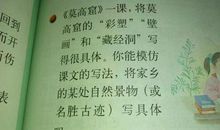 《莫高窟》一课,将莫
高窟的“彩塑”“壁
画”和“藏经洞”写
得很具体。你能模仿
课文的写法,将家乡
的某处自然景物(或
名胜古迹)写具体
回
而开
而伤
表